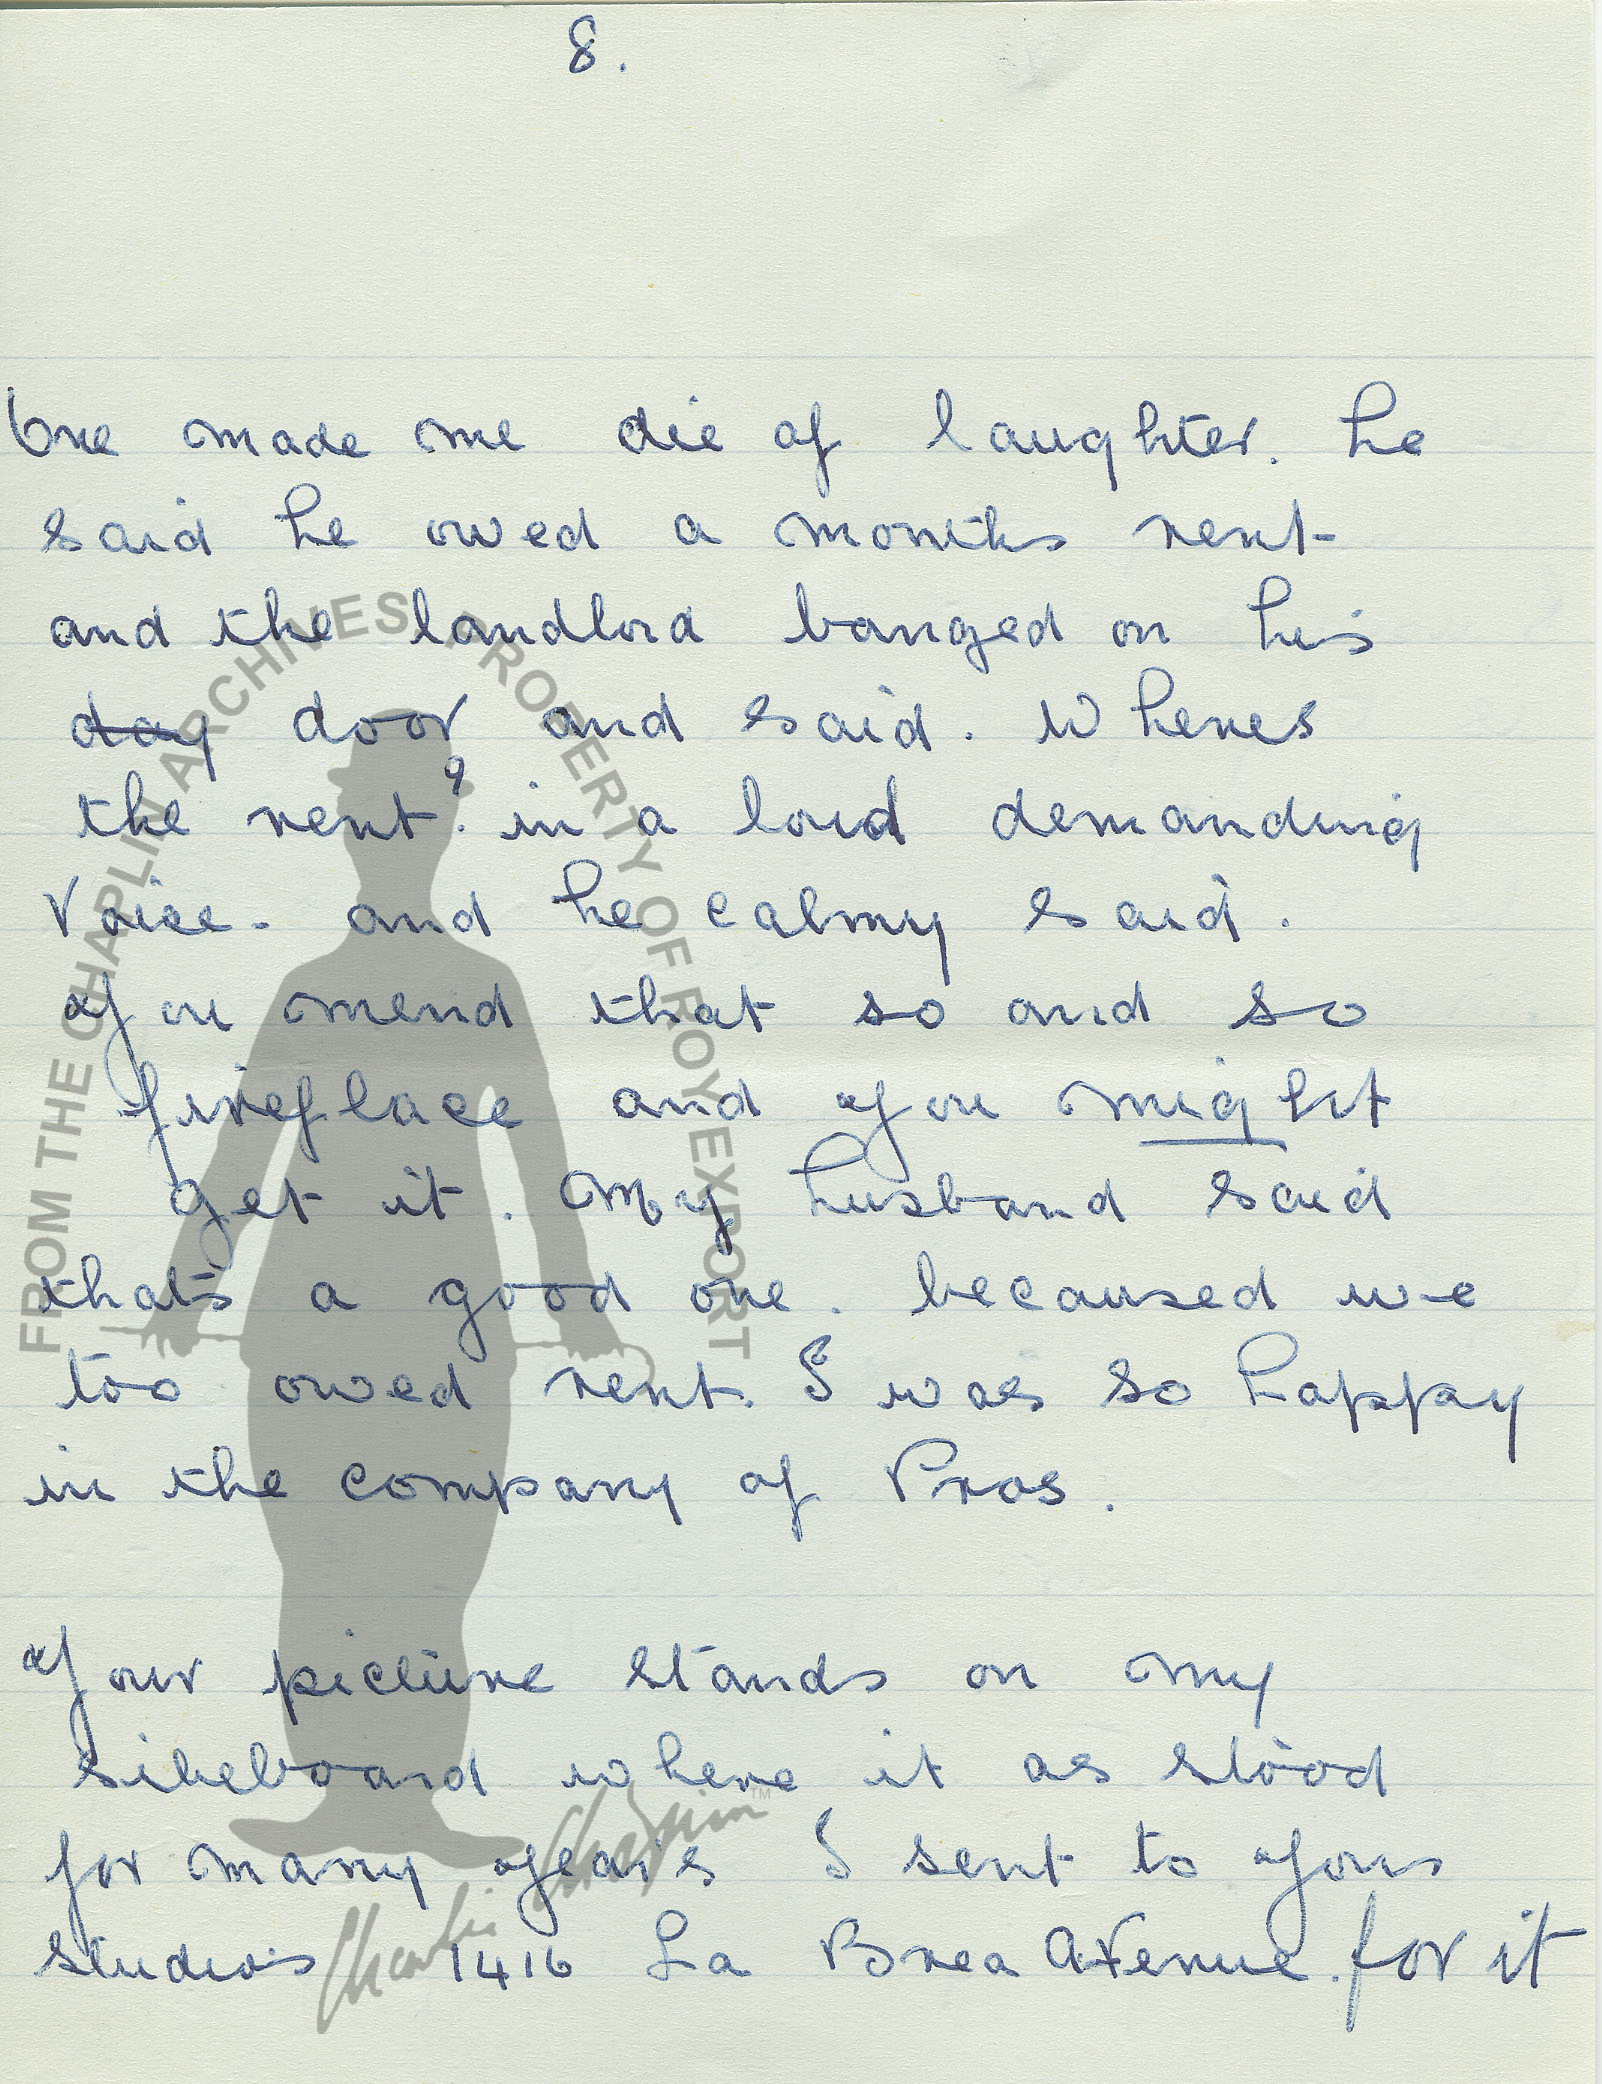 8.
One made me die of laughter. he
said he owed a months rent-
and the landlord banged on his
day door and said. Wheres
the rent? in a loud demanding
voice. and he calmy said.
you mend that so and so
fireplace and you might
get it. My husband said
that's a good one. becaused we
too owed rent. I was so happy
in the company of Pros.
Your picture stands on my
sikeboard where it as stood
for many years I sent to your
studios 1416 La Brea Avenue. for it
FROM THE CHAPLIN ARCHIVES, PROPERTY OF ROY EXPORT
Charlie Chaplin TM